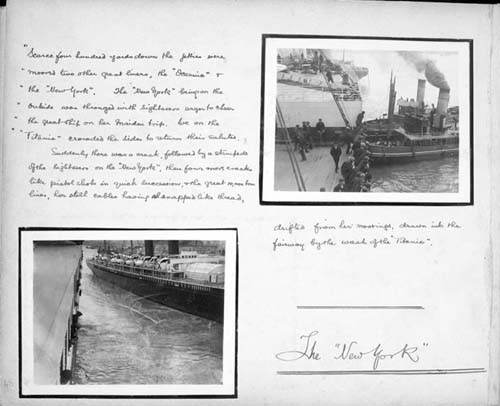 "Scarce four hundred yards down the jetties were
"moored two other great liners, the "Oceania" &
"the "New York". The "New York" being on the
"outside was thronged with sightseers anger to cheer
"the great ship on her Maiden trip. We on the
"Titanic" crowded the sides to return their salutes.
Suddenly there was a crack, followed by a stampede
of the sightseers on the "New York", then four more cracks
like pistol shots in quick succession, & the great
liner, her steel cables having snapped like thread,
drifted from her moorings, drawn into the
fairway by the wash of the "Titanic".
The "New York"